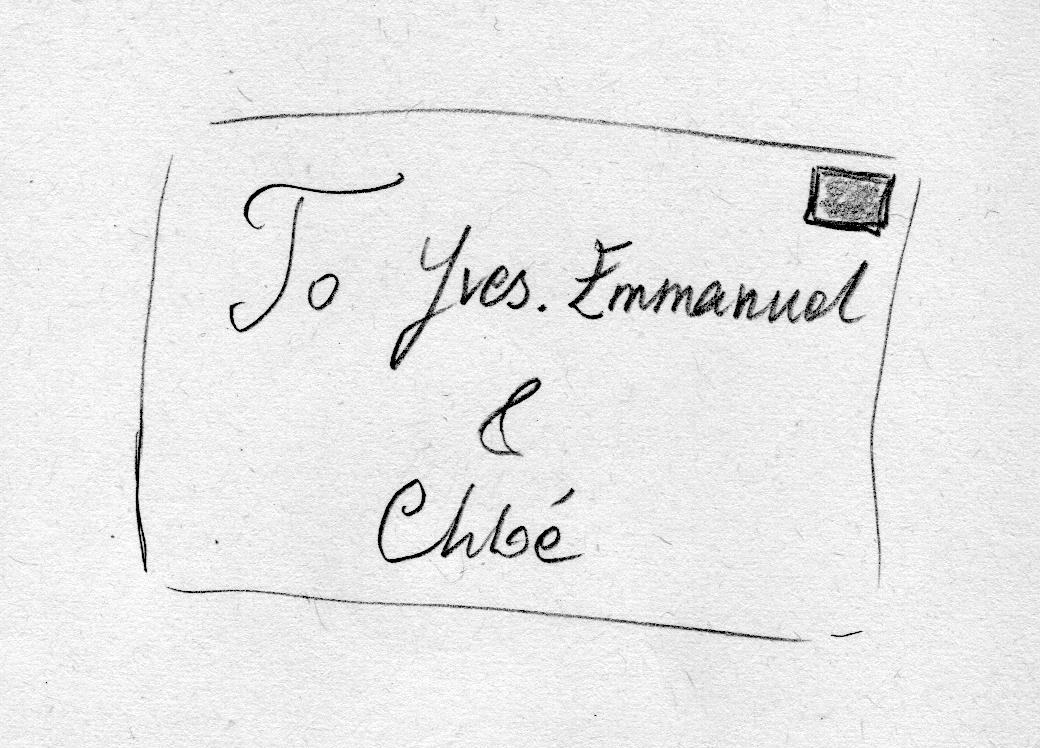 To Yves. Emmanuel
&
Chloé